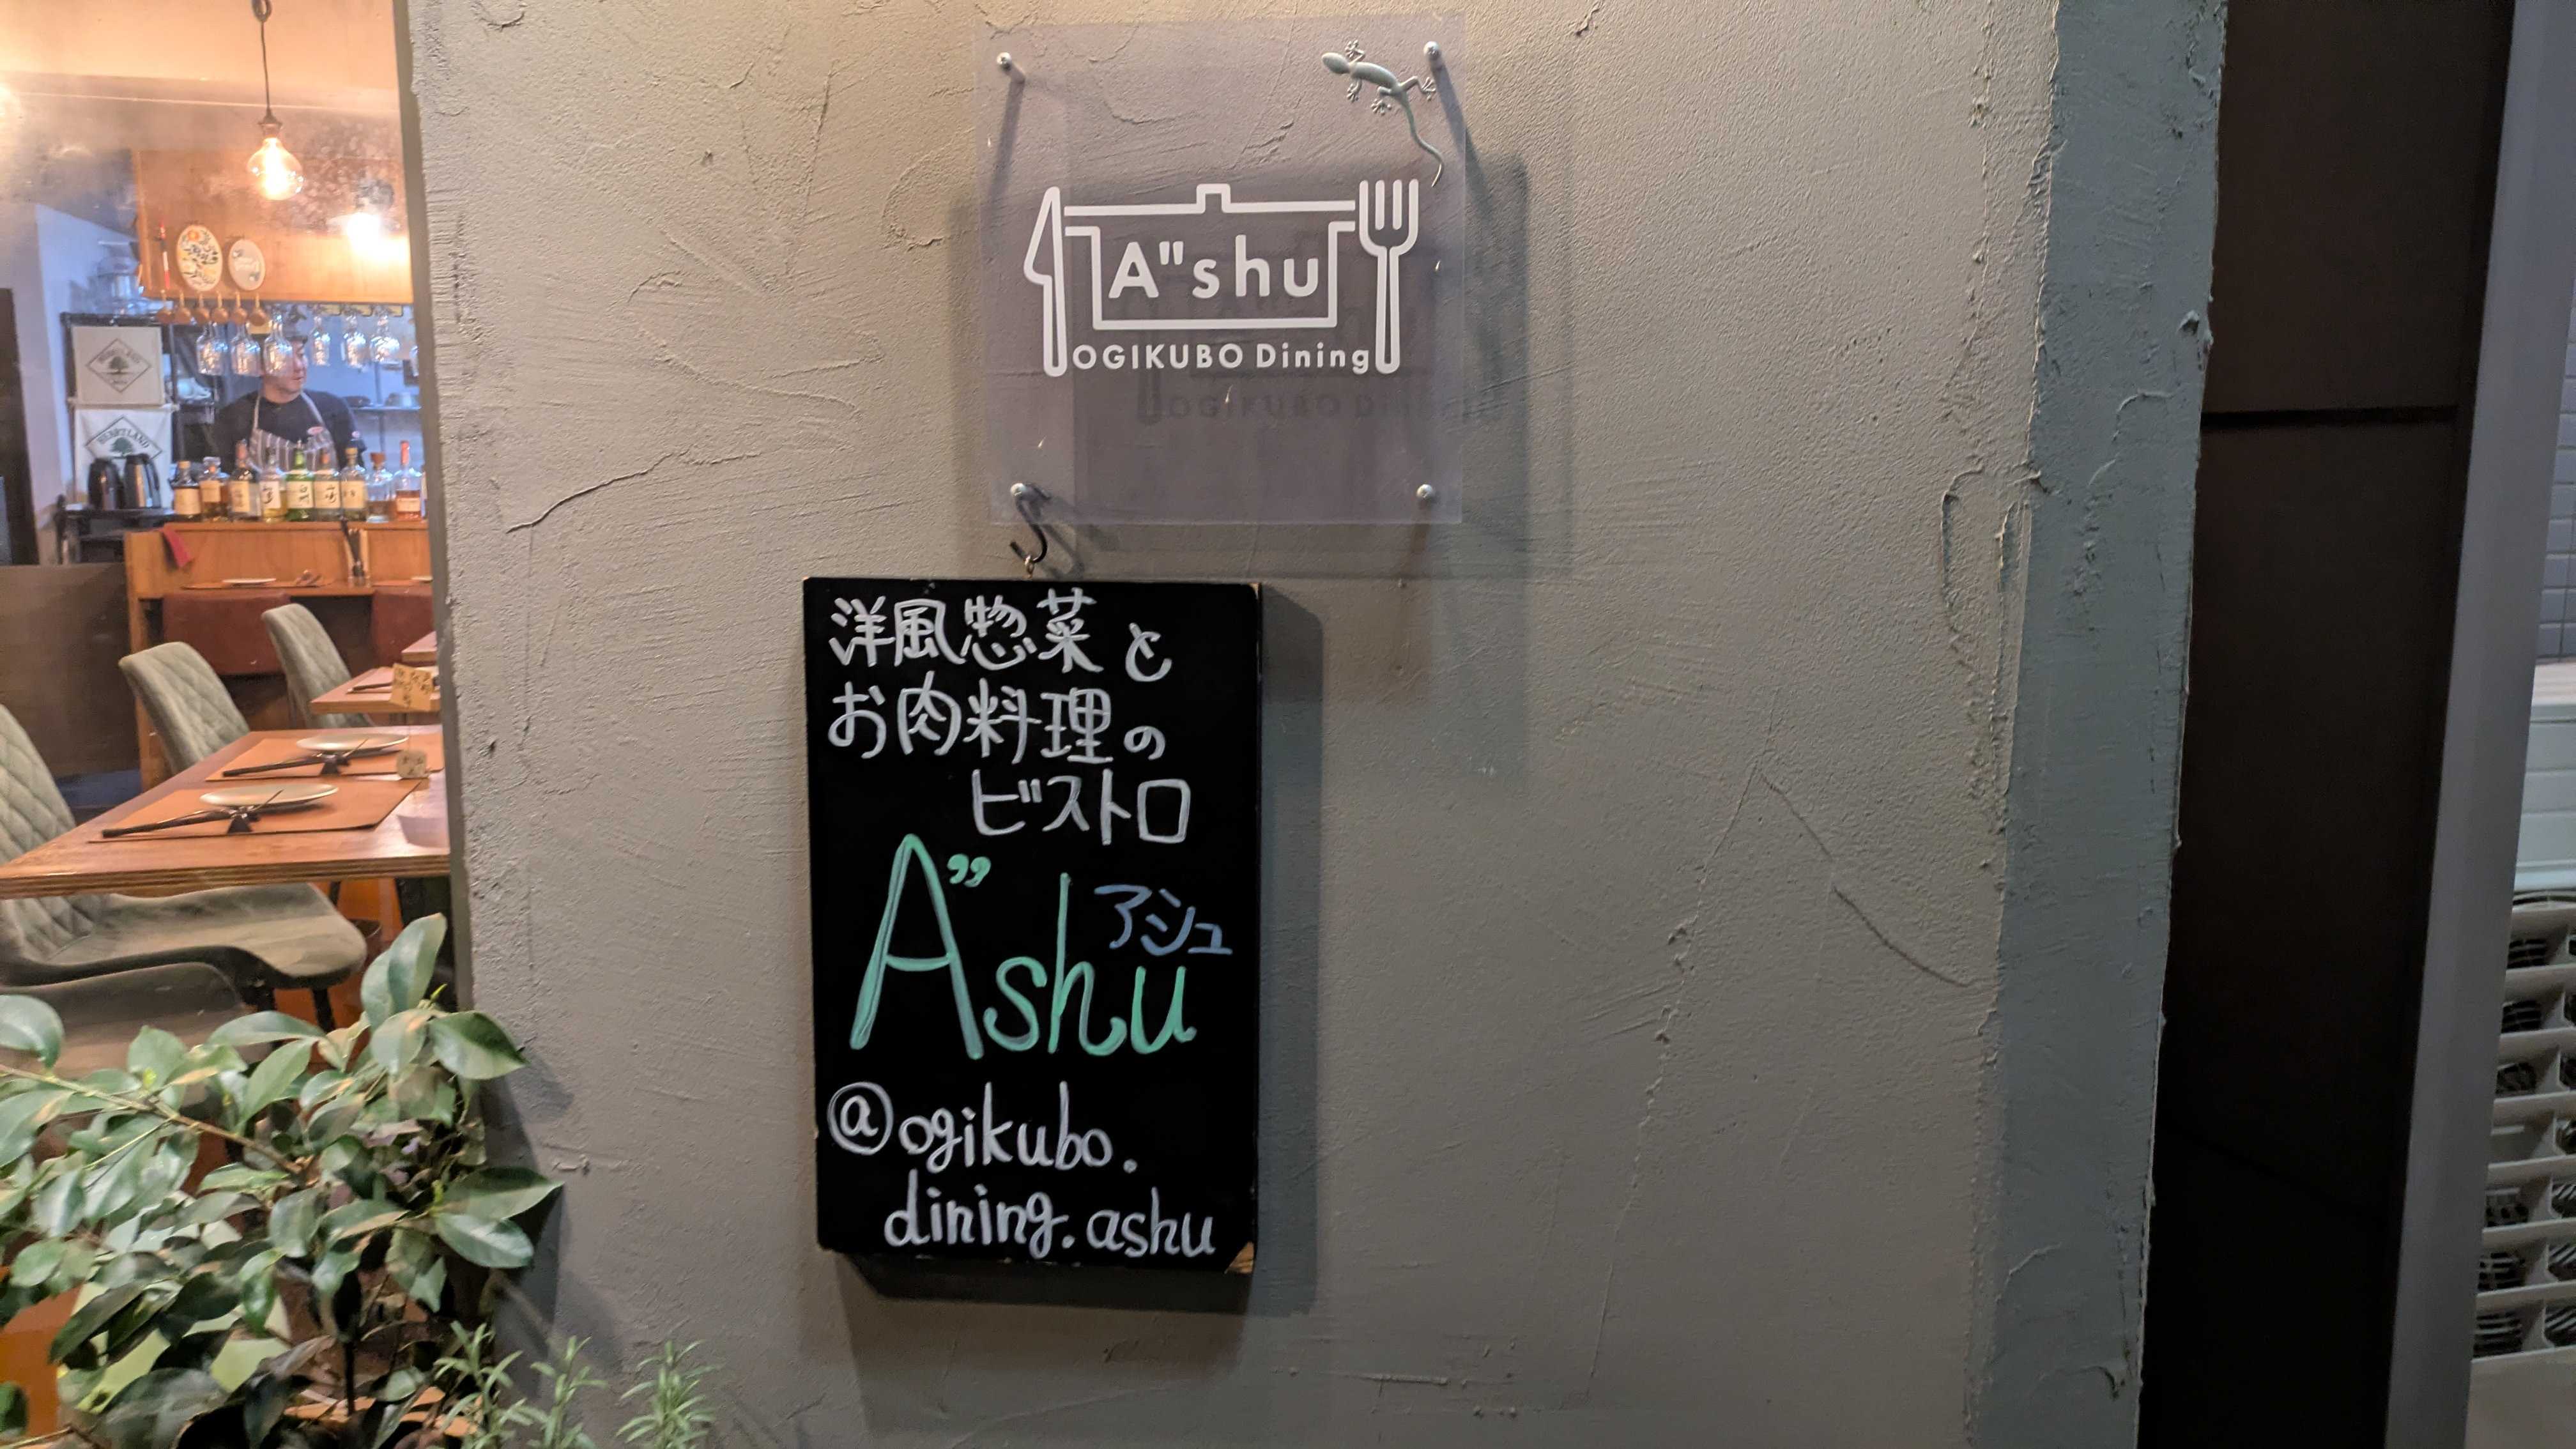 A"shu
OGIKUBO Dining
洋風惣菜と
お肉料理の
ビストロ
A"shu
アシュ
@ogikubo.
dining.ashu
HEARTLAND